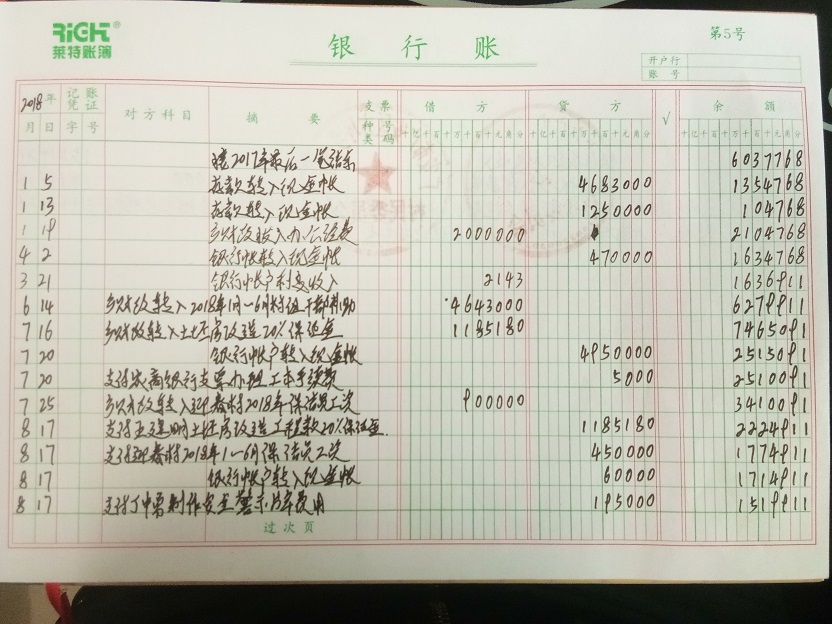 RiCH®
莱特账簿
银行账
第5号
开户行
账号
2018年 记账凭证 对方科目 摘要 支票 借方 贷方 √ 余额
月 日 字 号 种类 号码 十亿千百十万千百十元角分 十亿千百十万千百十元角分 十亿千百十万千百十元角分
2017年最后一笔结余 6037768
1 5 存款转入现金帐 4683000 1354768
1 13 存款转入现金帐 1250000 104768
1 19 乡财政收入办公经费 2000000 2104768
4 2 银行帐转入现金帐 470000 1634768
3 21 银行帐户利息收入 2143 1636911
6 14 乡财政转入2018年1月-6月村组干部补助 4643000 6279911
7 16 乡财政转入土坯房改造20%保证金 1185180 7465091
7 20 银行帐户转入现金帐 4950000 2515091
7 20 支付农商银行支票办理工本手续费 5000 2510091
7 25 乡财政转入迎春村2018年保洁员工资 900000 3410091
8 17 支付王建明土坯房改造工程款20%保证金 1185180 2224911
8 17 支付迎春村2018年1-6月保洁员工资 450000 1774911
8 17 银行帐户转入现金帐 60000 1714911
8 17 支付丁中勇制作安全警示片等费用 195000 1519911
过次页